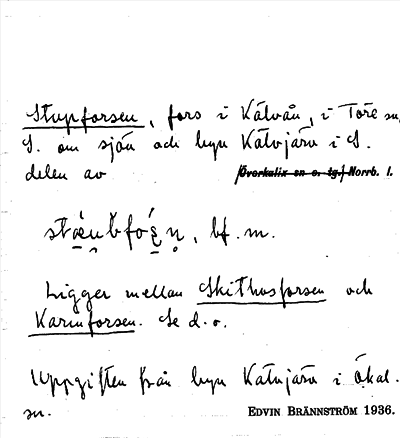 Stupforsen, fors i Kätvån, i Töre sn,
S. om sjön och byn Kätvjärv i S.
delen av /Överkalix sn o. tg./ Norrb. l.
bf. m.
Ligger mellan Skithusforsen och
Karinforsen. Se d. o.
Uppgiften från byn Kätvjärv i Ökal.
sn.
EDVIN BRÄNNSTRÖM 1936.